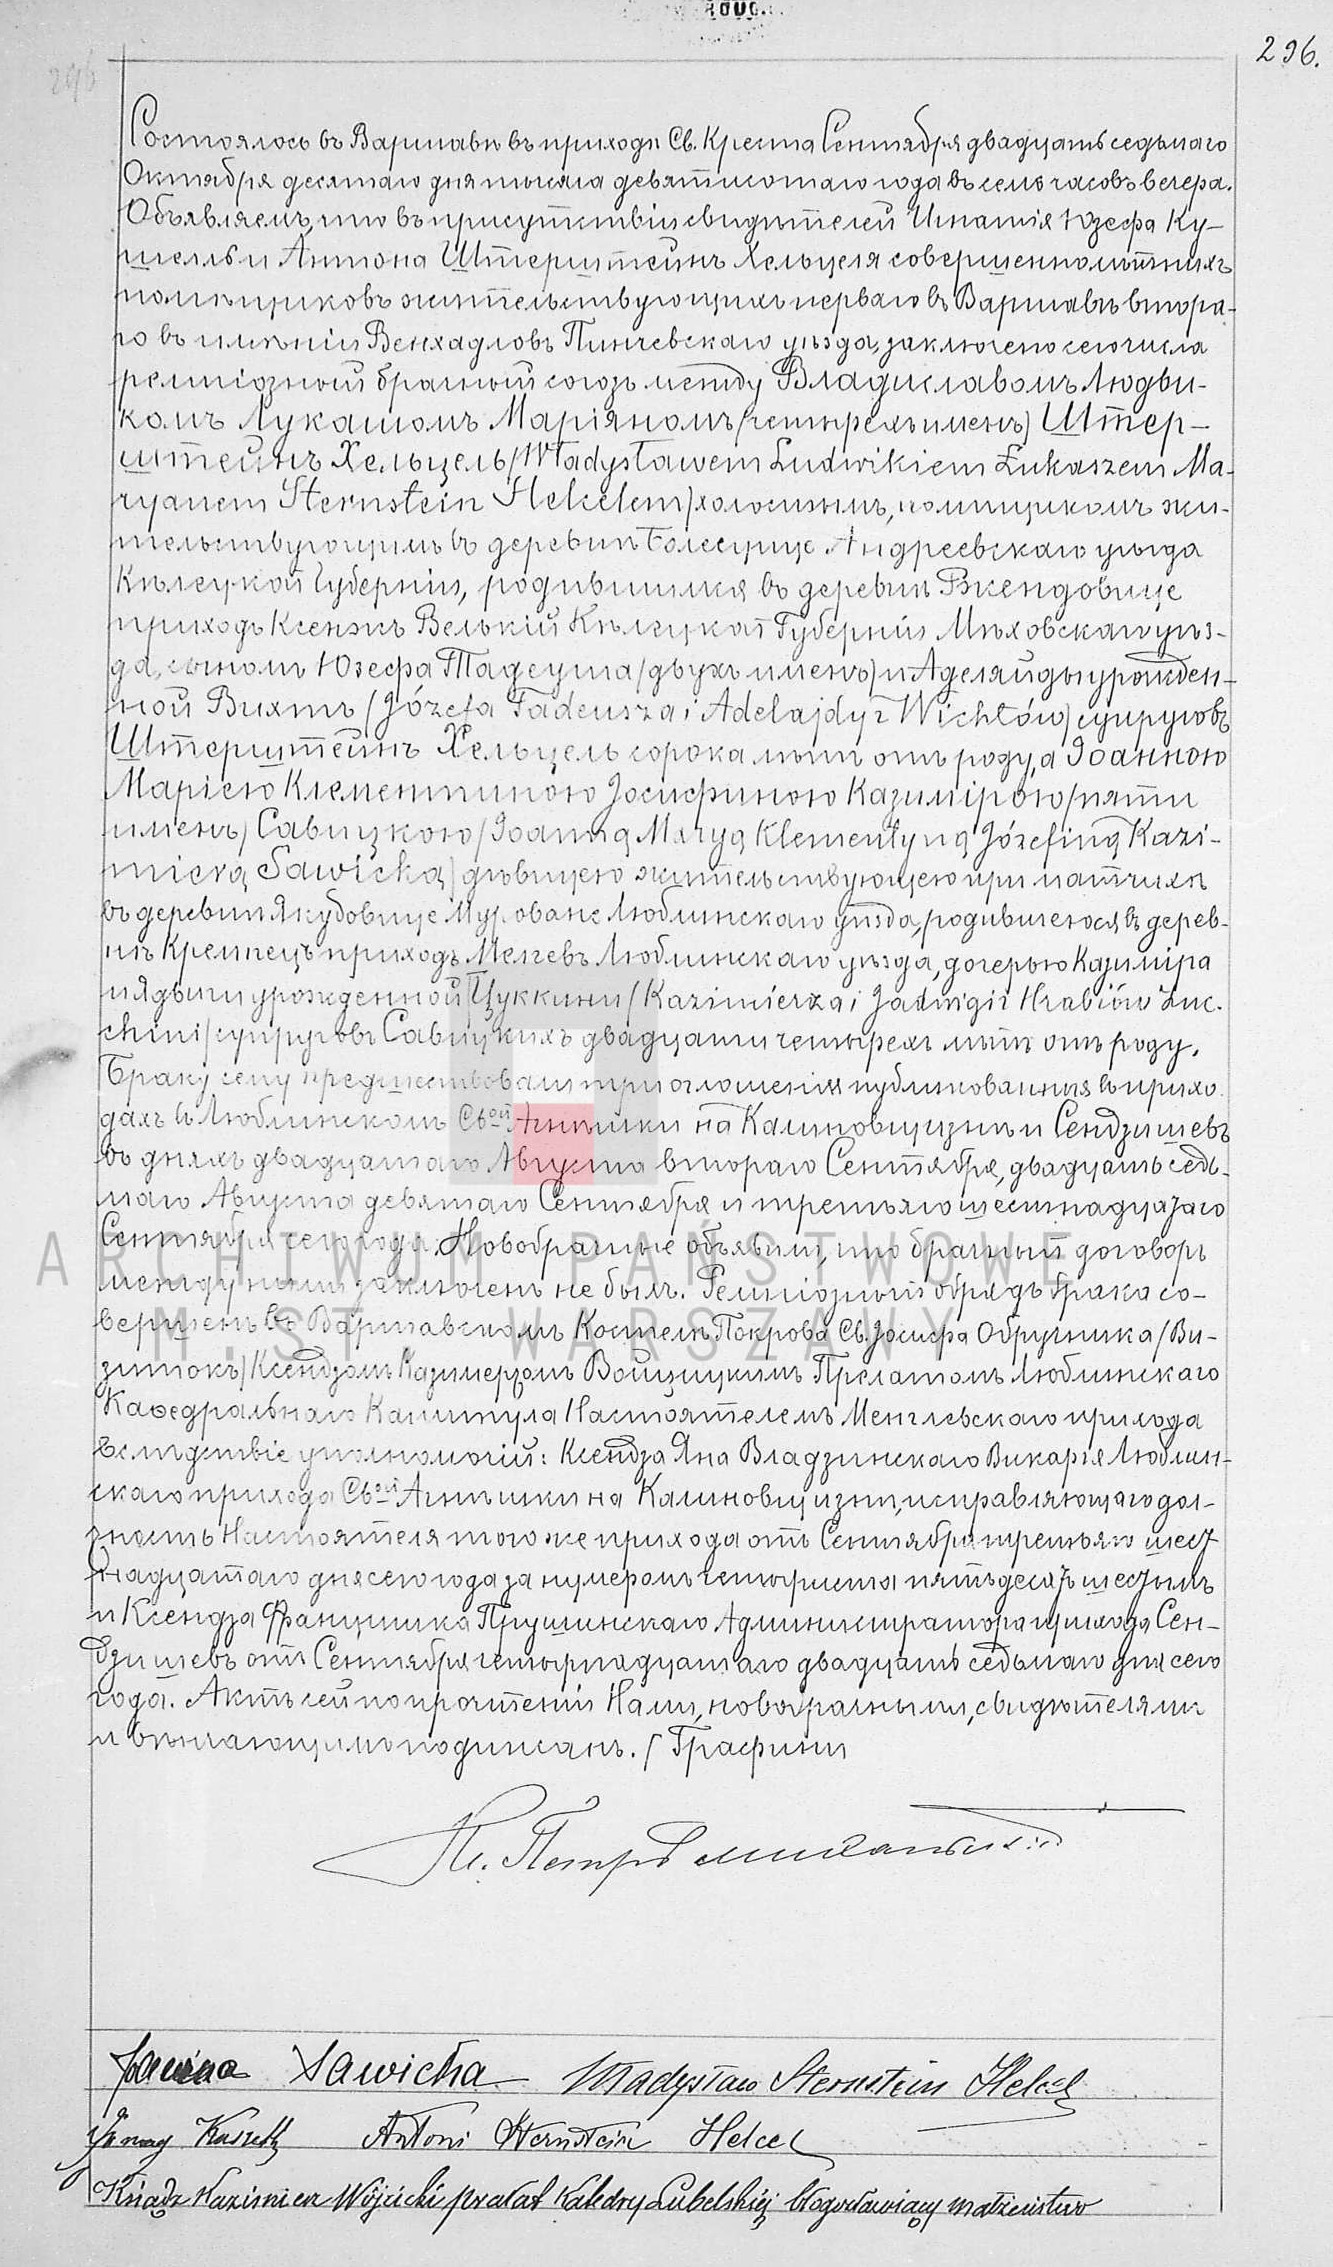 296.
296
Состоялось въ Варшавѣ въ приходѣ Св. Креста Сентября двадцать седьмаго
Октября десятаго дня тысяча девятисотаго года въ семь часовъ вечера.
Объявляемъ, что въ присутствіи свидѣтелей Игнатія Юзефа Ку-
шелль и Антона Штерштейнъ Хельцеля совершеннолѣтнихъ
помѣщиковъ жительствующихъ перваго въ Варшавѣ втора-
го въ имѣніи Венхадловъ Пинчевскаго уѣзда, заключенъ сего числа
религіозный брачный союзъ между Владиславомъ Людви-
комъ Лукашомъ Маріяномъ (четырехъ именъ) Штер-
штейнъ Хельцель (Władysławem Ludwikiem Łukaszem Ma-
ryanem Sternstein Helclem) холостымъ, помѣщикомъ жи-
тельствующимъ въ деревнѣ Болесцице Андреевскаго уѣзда
Кѣлецкой Губерніи, родившимся въ деревнѣ Вкендовице
приходъ Ксенжъ Велькій Кѣлецкой Губерніи Мѣховскаго уѣз-
да, сыномъ Юзефа Тадеуша (двухъ именъ) и Аделяйды урожден-
ной Вихтъ (Józefa Tadeusza i Adelajdy z Wichtów) супруговъ
Штерштейнъ Хельцель сорока лѣтъ отъ роду, а Іоанною
Маріею Клементиною Іосифиною Казимірою (пяти
именъ) Савицкою (Joanną Maryą Klementyną Józefiną Kazi-
mierą Sawicką) дѣвицею жительствующею при матери
въ деревнѣ Якубовице Мурованe Люблинскаго уѣзда, родившеюся въ дерев-
нѣ Кремпецъ приходъ Мелгевъ Люблинскаго уѣзда, дочерью Казиміра
и Ядвиги урожденной Цуккини (Kazimierza i Jadwigi z Hrabiów Zuc-
chini) супруговъ Савицкихъ двадцати четырехъ лѣтъ отъ роду.
Браку сему предшествовали три оглошенія публикованныя въ прихо
дахъ въ Люблинскомъ Св<sup>ой</sup> Агнѣшки на Калиновщизнѣ и Сендзишевъ
въ дняхъ двадцатаго Августа втораго Сентября, двадцать седь-
маго Августа девятаго Сентября и третьяго шестнадцатаго
Сентября сего года. Новобрачные объявили, что брачный договоръ
между ними заключенъ не былъ. Религіозный обрядъ брака со-
вершенъ въ Варшавскомъ Костелѣ Покрова Св. Іосифа Обручника (Ви-
зитокъ) Ксендзомъ Казимерзомъ Войцицкимъ Прелатомъ Люблинскаго
Каѳедральнаго Капитула Настоятелемъ Мелгевскаго прихода
вслѣдствіе уполномочій: Ксендза Яна Владзинскаго Викарія Люблин-
скаго прихода Св<sup>ой</sup> Агнѣшки на Калиновщизнѣ, исправляющаго дол-
жность Настоятеля того же прихода отъ Сентября третьяго шест
надцатаго дня сего года за нумеромъ четыриста пятьдесятъ шестымъ
и Ксендза Францишка Прушинскаго Администратора прихода Сен-
дзишевъ отъ Сентября четырнадцатаго двадцать седьмаго дня сего
года. Актъ сей по прочтеніи Нами, новобрачными, свидѣтелями
и вѣнчающимъ подписанъ. / Графини
Sawicka Władysław Sternstein Helcel
Antoni Sternstein Helcel
Ksiądz Kazimierz Wójcicki prałat Katedry Lubelskiej błogosławiący małżeństwo
ARCHIWUM PAŃSTWOWE
M. ST. WARSZAWY